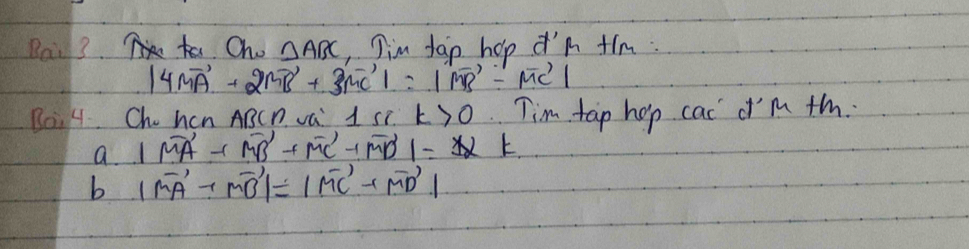 Bài 3. Cho △ABC, Tìm tập hợp đ' M t/m :
|4MA→ + 2MB→ + 3MC→| = |MB→ - MC→|
Bài 4. Cho hcn ABCD và 1 số k > 0. Tìm tập hợp các đ' M t/m.
a. |MA→ + MB→ + MC→ + MD→| = k
b |MA→ + MB→| = |MC→ + MD→|